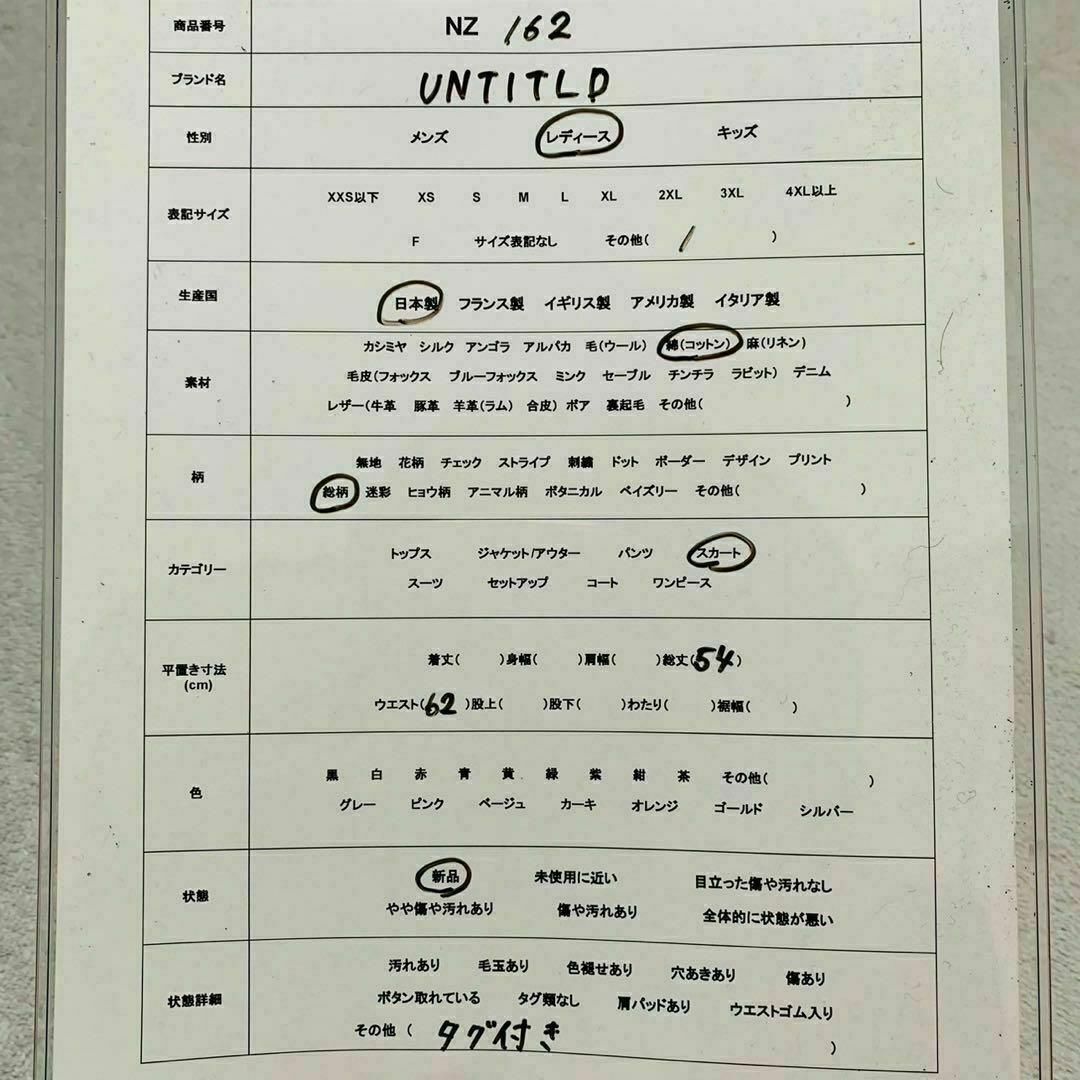 商品番号 NZ 162
ブランド名 UNTITLD
性別 メンズ レディース キッズ
表記サイズ XXS以下 XS S M L XL 2XL 3XL 4XL以上
F サイズ表記なし その他( / )
生産国 日本製 フランス製 イギリス製 アメリカ製 イタリア製
カシミヤ シルク アンゴラ アルパカ 毛(ウール) 綿(コットン) 麻(リネン)
素材 毛皮(フォックス ブルーフォックス ミンク セーブル チンチラ ラビット) デニム
レザー(牛革 豚革 羊革(ラム) 合皮) ボア 裏起毛 その他( )
柄 無地 花柄 チェック ストライプ 刺繍 ドット ボーダー デザイン プリント
総柄 迷彩 ヒョウ柄 アニマル柄 ボタニカル ペイズリー その他( )
カテゴリー トップス ジャケット/アウター パンツ スカート
スーツ セットアップ コート ワンピース
平置き寸法 (cm) 着丈( )身幅( )肩幅( )総丈(54)
ウエスト(62)股上( )股下( )わたり( )裾幅( )
色 黒 白 赤 青 黄 緑 紫 紺 茶 その他( )
グレー ピンク ベージュ カーキ オレンジ ゴールド シルバー
状態 新品 未使用に近い 目立った傷や汚れなし
やや傷や汚れあり 傷や汚れあり 全体的に状態が悪い
状態詳細 汚れあり 毛玉あり 色褪せあり 穴あきあり 傷あり
ボタン取れている タグ類なし 肩パッドあり ウエストゴム入り
その他 ( タグ付き )